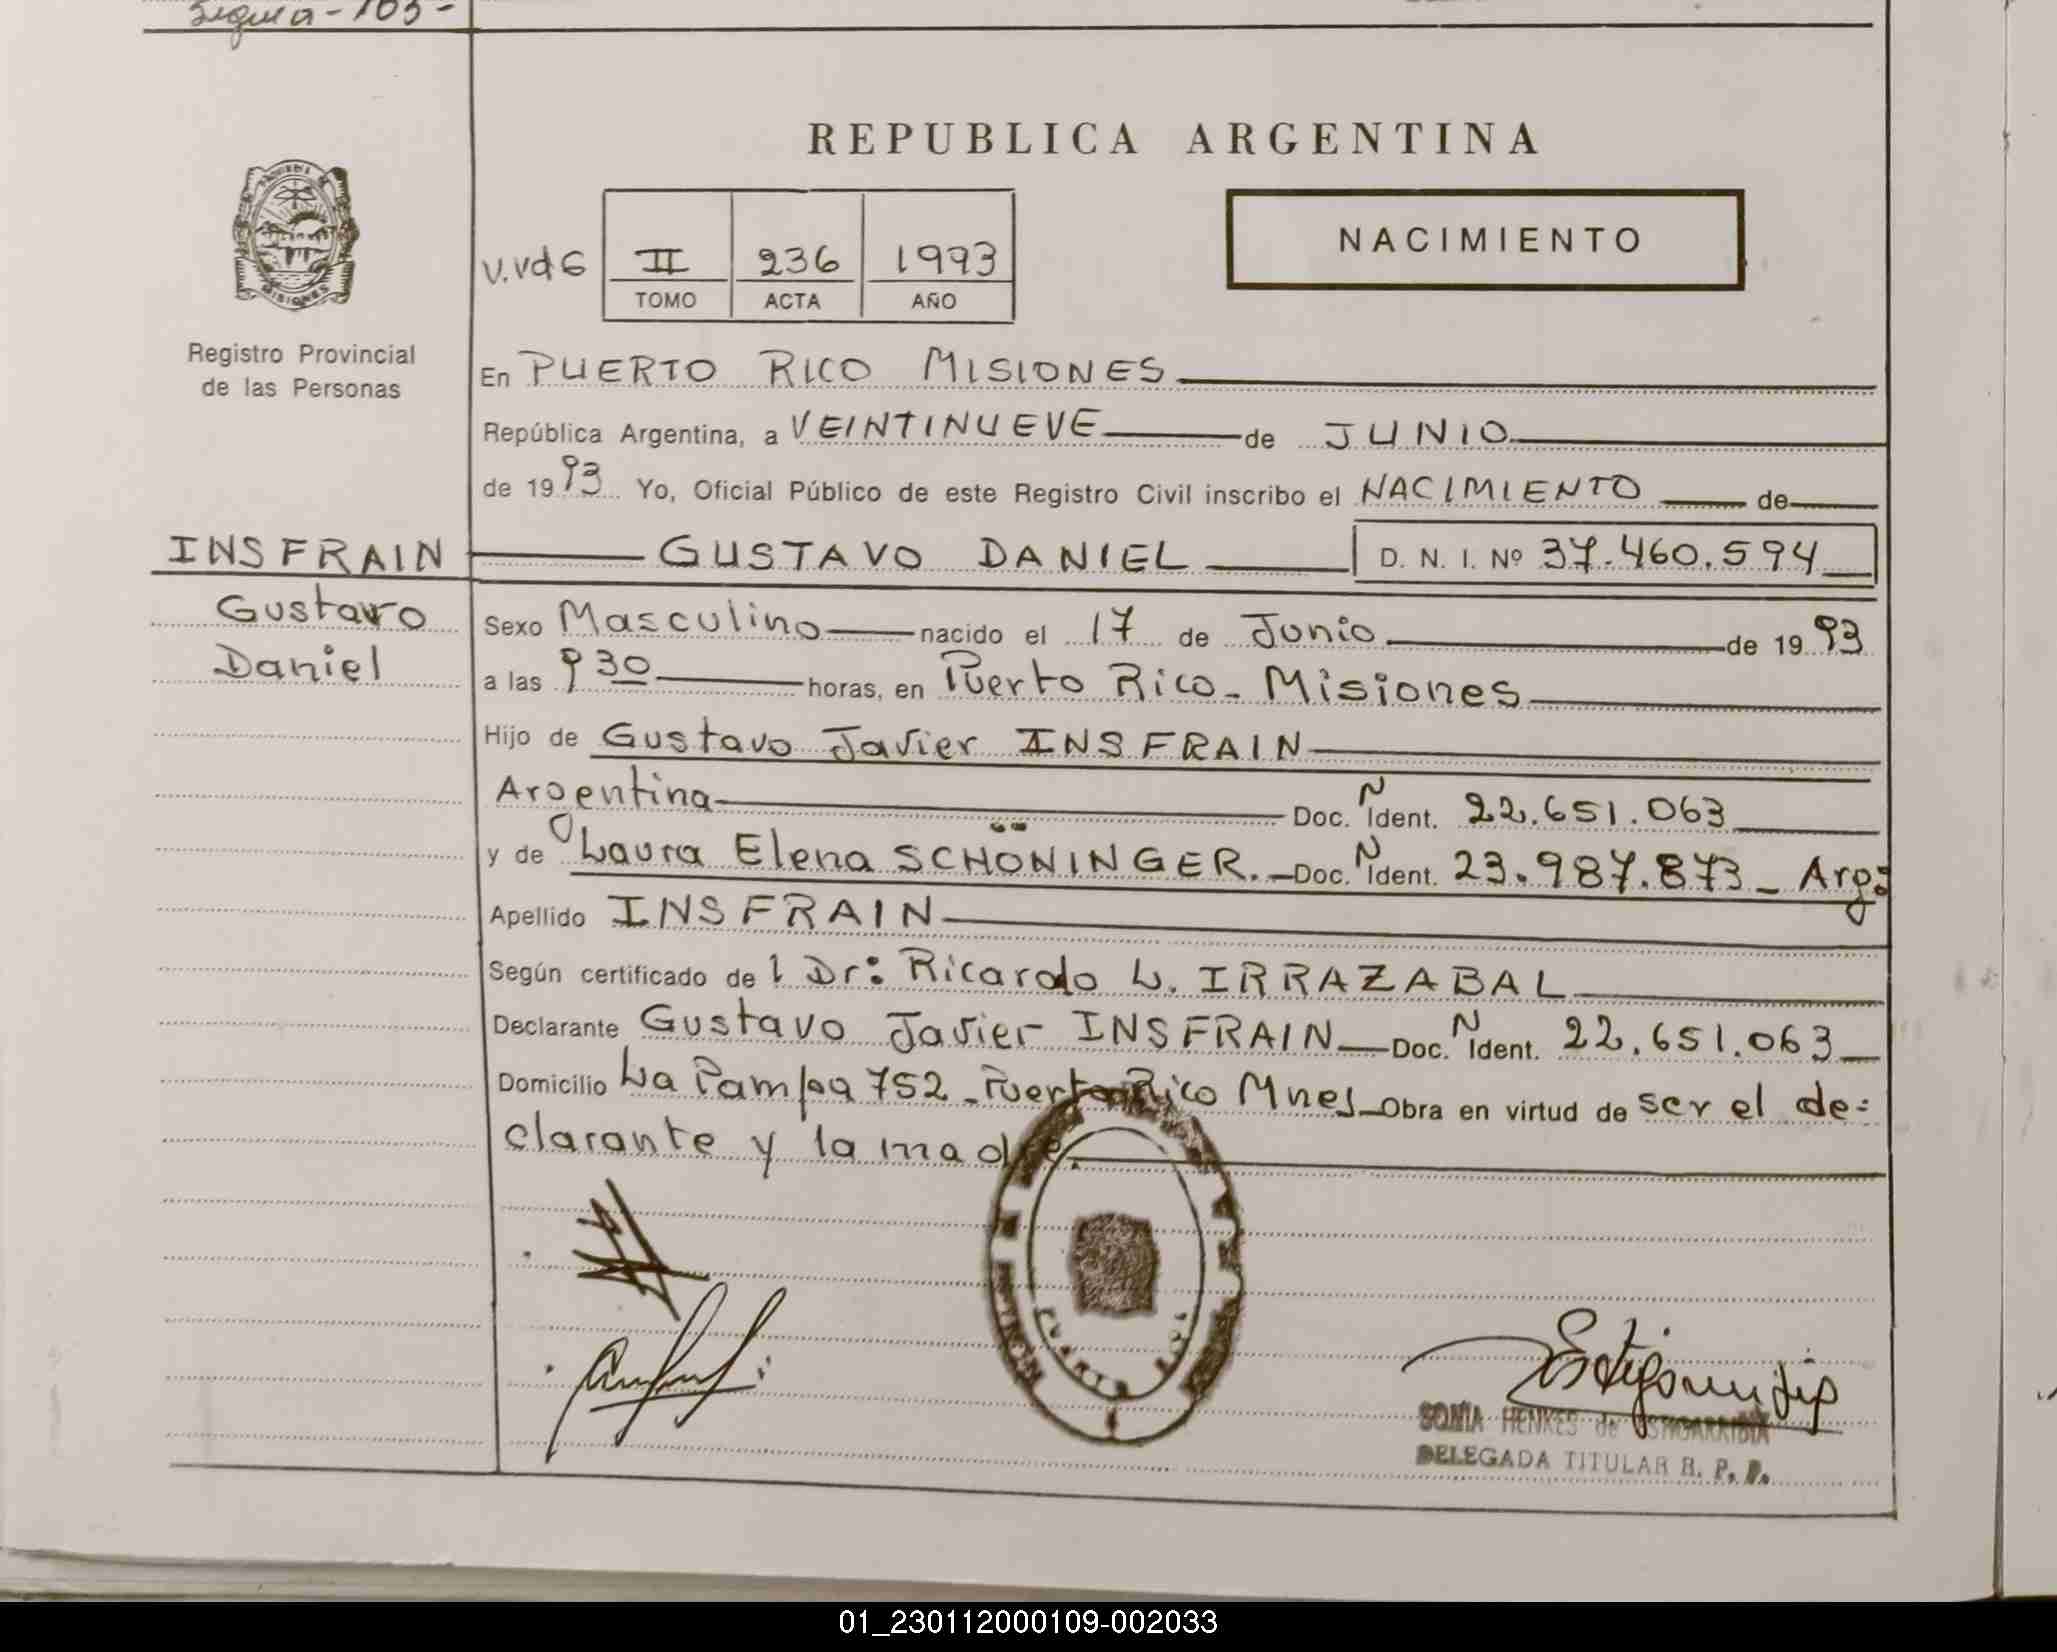 REPUBLICA ARGENTINA
NACIMIENTO
V.Vd6 II 236 1993
TOMO ACTA AÑO
Registro Provincial
de las Personas
En PUERTO RICO MISIONES
República Argentina, a VEINTINUEVE de JUNIO
de 1993 Yo, Oficial Público de este Registro Civil inscribo el NACIMIENTO de
INSFRAIN GUSTAVO DANIEL D. N. I. Nº 37.460.594
Gustavo
Daniel
Sexo Masculino nacido el 17 de Junio de 1993
a las 9 30 horas, en Puerto Rico - Misiones
Hijo de Gustavo Javier INSFRAIN
Argentina Doc. N Ident. 22.651.063
y de Laura Elena SCHÖNINGER. Doc. N Ident. 23.987.873 - Arg:
Apellido INSFRAIN
Según certificado de l Dr: Ricardo L. IRRAZABAL
Declarante Gustavo Javier INSFRAIN Doc. N Ident. 22.651.063
Domicilio La Pampa 752 - Puerto Rico Mnes Obra en virtud de ser el de=
clarante y la madre.
SONIA HENKES de ESTIGARRIBIA
DELEGADA TITULAR R. P. P.
01_230112000109-002033